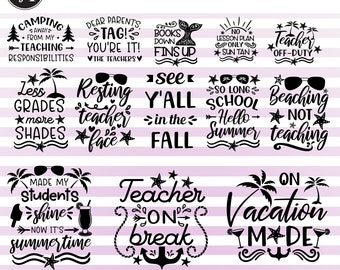 CAMPING
AWAY
FROM MY
TEACHING
RESPONSIBILITIES
DEAR PARENTS
TAG!
YOU'RE IT!
THE TEACHERS
BOOKS
DOWN
FINS UP
NO
LESSON PLAN
ONLY
SUN TAN
Teacher
OFF-DUTY
Less
GRADES
more
SHADES
Resting
teacher
face
see
Y'ALL
in the
FALL
SO LONG
SCHOOL
Hello
Summer
Beaching
NOT
teaching
MADE MY
Students
shine
NOW IT'S
summertime
Teacher
ON
break
ON
Vacation
MODE